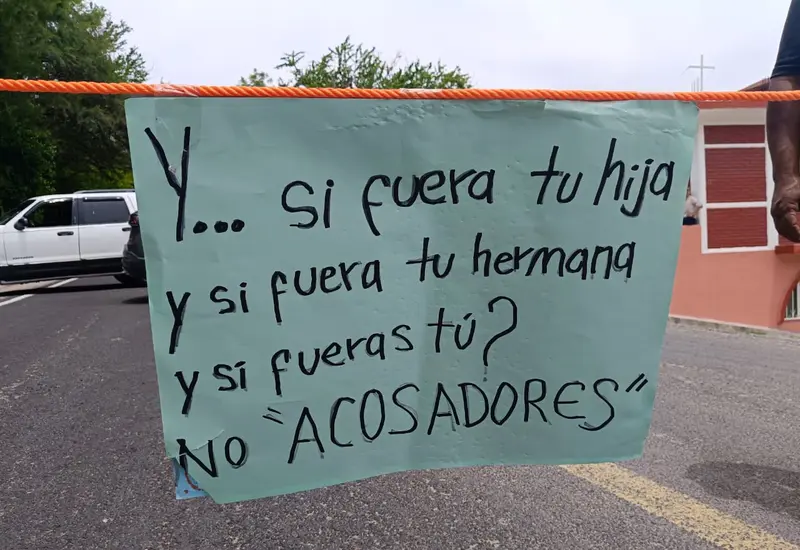 Y... si fuera tu hija
y si fuera tu hermana
y si fueras tú?
No "ACOSADORES"